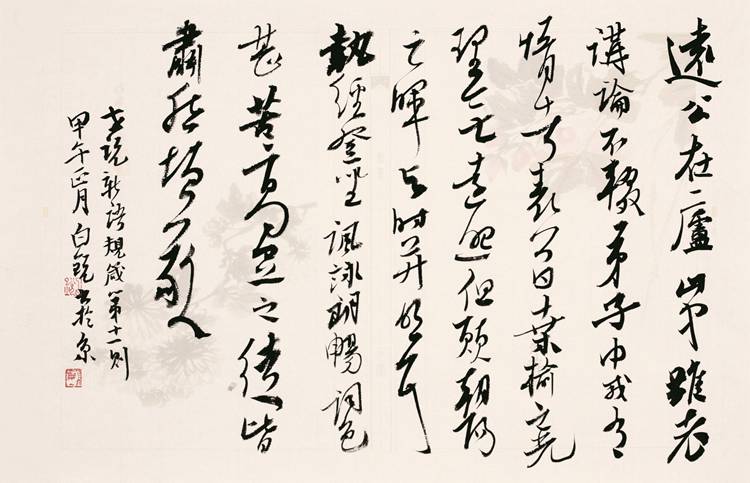 遠公在廬山中雖老
講論不輟弟子中或有
惰者遠公曰桑榆之光
理無遠照但願朝陽
之暉與時并明耳
執經登坐諷詠朗暢詞色
甚苦高足之徒皆
肅然增敬
世説新語規箴第十一則
甲午正月白銳書於京